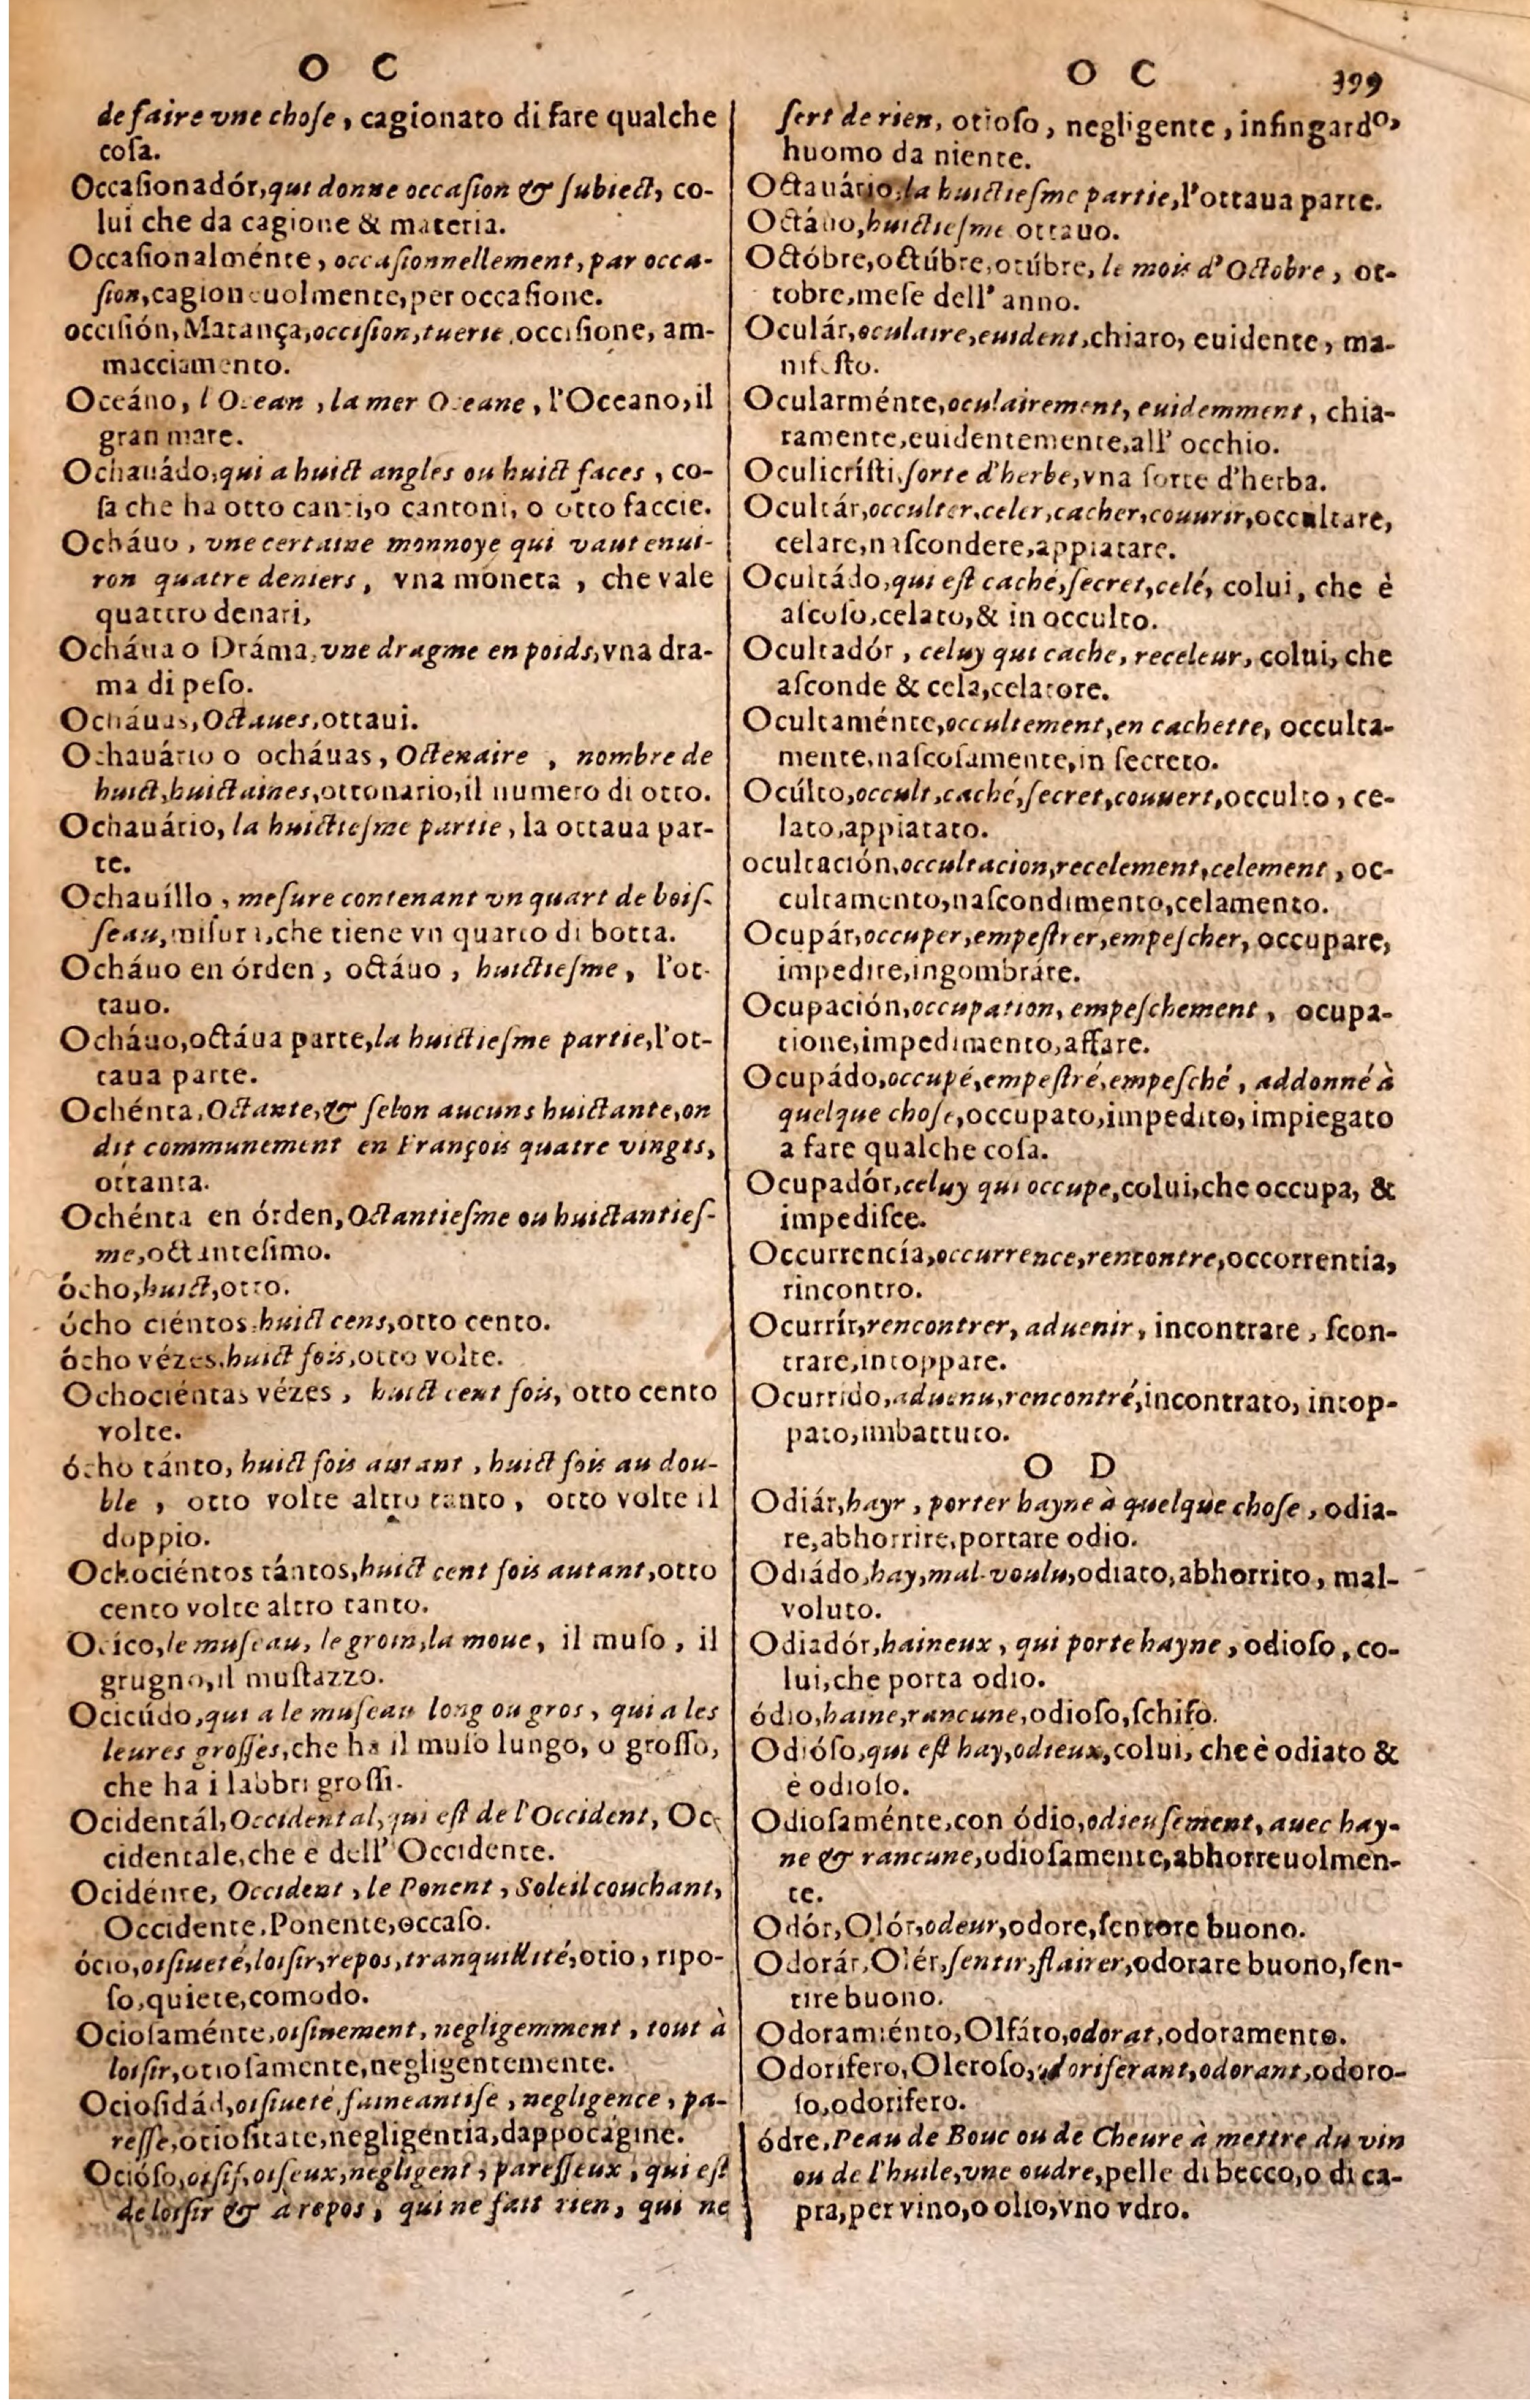 O C
de faire vne choſe, cagionato di fare qualche
coſa.
Occaſionadór, qui donne occaſion & ſubiect, co-
lui che da cagione & materia.
Occaſionalménte, occaſionnellement, par occa-
ſion, cagioneuolmente, per occaſione.
occiſión, Matança, occiſion, tuerie, occiſione, am-
macciamento.
Oceáno, l'Ocean, la mer Oceane, l'Oceano, il
gran mare.
Ochauádo, qui a huict angles ou huict faces, co-
ſa che ha otto canti, o cantoni, o otto faccie.
Ocháuo, vne certaine monnoye qui vaut enui-
ron quatre deniers, vna moneta, che vale
quattro denari,
Ocháua o Dráma, vne dragme en poids, vna dra-
ma di peſo.
Ocháuas, Octaues, ottaui.
Ochauário o ocháuas, Octenaire, nombre de
huict, huictaines, ottonario, il numero di otto.
Ochauário, la huictieſme partie, la ottaua par-
te.
Ochauíllo, meſure contenant vn quart de boiſ-
ſeau, miſura, che tiene vn quarto di botta.
Ocháuo en órden, octáuo, huictieſme, l'ot-
tauo.
Ocháuo, octáua parte, la huictieſme partie, l'ot-
taua parte.
Ochénta, Octante, & ſelon aucuns huictante, on
dit communement en François quatre vingts,
ottanta.
Ochénta en órden, Octantieſme ou huictantieſ-
me, octanteſimo.
ócho, huict, otto.
ócho ciéntos, huict cens, otto cento.
ócho vézes, huict fois, otto volte.
Ochociéntas vézes, huict cent fois, otto cento
volte.
ócho tánto, huict fois autant, huict fois au dou-
ble, otto volte altro tanto, otto volte il
doppio.
Ochociéntos tántos, huict cent fois autant, otto
cento volte altro tanto.
Ocíco, le muſeau, le groin, la moue, il muſo, il
grugno, il muſtazzo.
Ocicúdo, qui a le muſeau long ou gros, qui a les
leures groſſes, che ha il muſo lungo, o groſſo,
che ha i labbri groſſi.
Ocidentál, Occidental, qui eſt de l'Occident, Oc-
cidentale, che e dell' Occidente.
Ocidénte, Occident, le Ponent, Soleil couchant,
Occidente, Ponente, occaſo.
ócio, oiſiueté, loiſir, repos, tranquillité, otio, ripo-
ſo, quiete, comodo.
Ocioſaménte, oiſinement, negligemment, tout à
loiſir, otioſamente, negligentemente.
Ocioſidád, oiſiueté, faineantiſe, negligence, pa-
reſſe, otioſitate, negligentia, dappocagine.
Ocióſo, oiſif, oiſeux, negligent, pareſſeux, qui eſt
de loiſir & à repos, qui ne fait rien, qui ne
O C 399
ſert de rien, otioſo, negligente, infingardo,
huomo da niente.
Octauário, la huictieſme partie, l'ottaua parte.
Octáuo, huictieſme ottauo.
Octóbre, octúbre, otúbre, le mois d'Octobre, ot-
tobre, meſe dell' anno.
Oculár, oculaire, euident, chiaro, euidente, ma-
nifeſto.
Ocularménte, oculairement, euidemment, chia-
ramente, euidentemente, all' occhio.
Oculicríſti, ſorte d'herbe, vna ſorte d'herba.
Ocultár, occulter, celer, cacher, couurir, occultare,
celare, naſcondere, appiatare.
Ocultádo, qui eſt caché, ſecret, celé, colui, che è
aſcoſo, celato, & in occulto.
Ocultadór, celuy qui cache, receleur, colui, che
aſconde & cela, celatore.
Ocultaménte, occultement, en cachette, occulta-
mente, naſcoſamente, in ſecreto.
Ocúlto, occult, caché, ſecret, couuert, occulto, ce-
lato, appiatato.
ocultación, occultacion, recelement, celement, oc-
cultamento, naſcondimento, celamento.
Ocupár, occuper, empeſtrer, empeſcher, occupare,
impedire, ingombráre.
Ocupación, occupation, empeſchement, ocupa-
tione, impedimento, affare.
Ocupádo, occupé, empeſtré, empeſché, addonné à
quelque choſe, occupato, impedito, impiegato
a fare qualche coſa.
Ocupadór, celuy qui occupe, colui, che occupa, &
impediſce.
Occurrencía, occurrence, rencontre, occorrentia,
rincontro.
Ocurrír, rencontrer, aduenir, incontrare, ſcon-
trare, intoppare.
Ocurrido, aduenu, rencontré, incontrato, intop-
pato, imbattuto.
O D
Odiár, hayr, porter hayne à quelque choſe, odia-
re, abhorrire, portare odio.
Odiádo, hay, mal-voulu, odiato, abhorrito, mal-
voluto.
Odiadór, haineux, qui porte hayne, odioſo, co-
lui, che porta odio.
ódio, haine, rancune, odioſo, ſchifo.
Odióſo, qui eſt hay, odieux, colui, che è odiato &
è odioſo.
Odioſaménte, con ódio, odieuſement, auec hay-
ne & rancune, odioſamente, abhorreuolmen-
te.
Odór, Olór, odeur, odore, ſentore buono.
Odorár, Olér, ſentir, flairer, odorare buono, ſen-
tire buono.
Odoramiénto, Olfáto, odorat, odoramento.
Odorifero, Oleroſo, odoriferant, odorant, odoro-
ſo, odorifero.
ódre, Peau de Bouc ou de Cheure à mettre du vin
ou de l'huile, vne oudre, pelle di becco, o di ca-
pra, per vino, o olio, vno vdro.